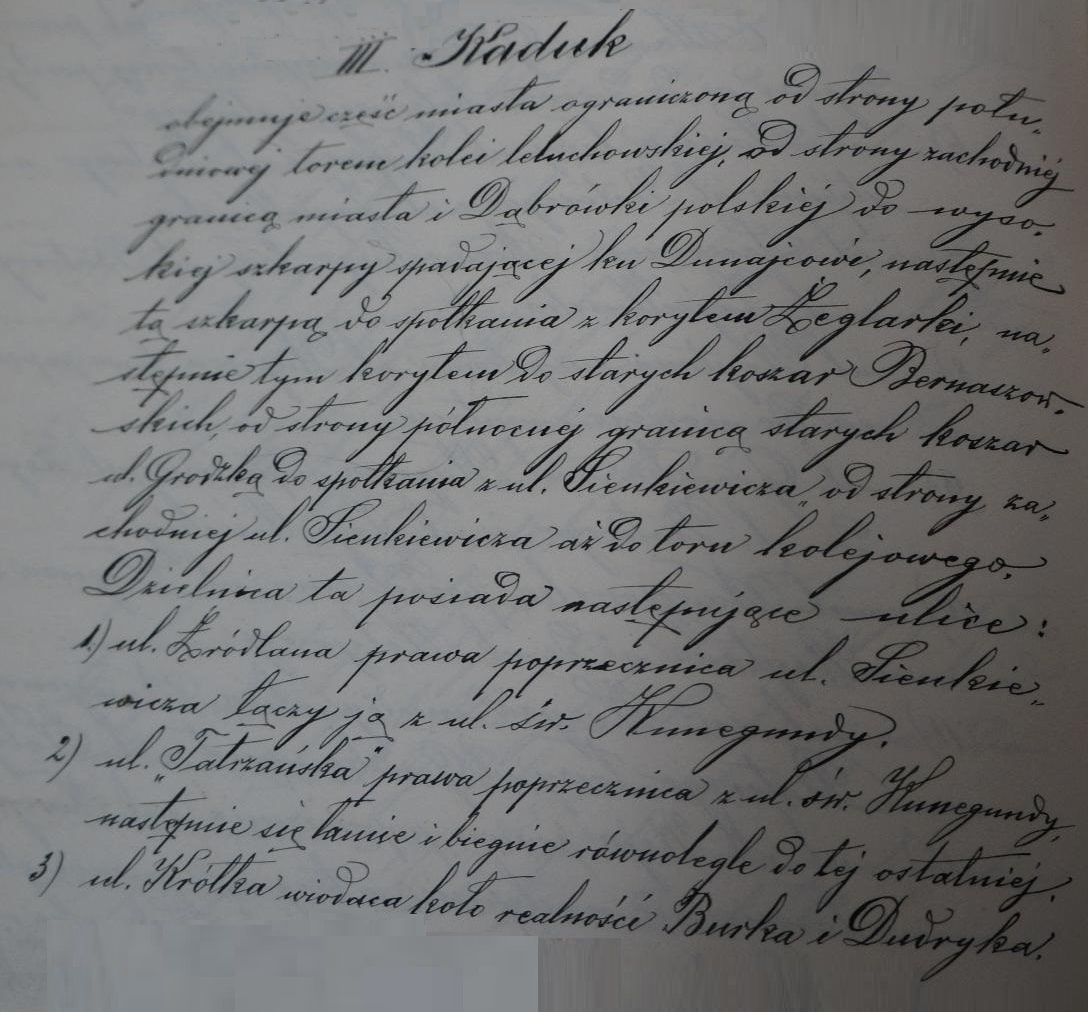 III. Kaduk
obejmuje część miasta ograniczoną od strony połu„
dniowej torem kolei leluchowskiej, od strony zachodniej
granicą miasta i Dąbrówki polskiej do wyso-
kiej szkarpy spadającej ku Dunajcowi, następnie
tą szkarpą do spotkania z korytem Żeglarki, na„
stępnie tym korytem do starych koszar Bernaszow-
skich, od strony północnej granicą starych koszar
ul. Grodzką do spotkania z ul. Sienkiewicza, od strony za„
chodniej ul. Sienkiewicza aż do toru kolejowego.
Dzielnica ta posiada następujące ulice:
1.) ul. Źródlana prawa poprzecznica ul. Sienkie„
wicza łączy ją z ul. św. Kunegundy.
2) ul. „Tatrzańska" prawa poprzecznica z ul. św. Kunegundy,
następnie się łamie i biegnie równolegle do tej ostatniej.
3) ul. Krótka wiodąca koło realności Burka i Dudryka.